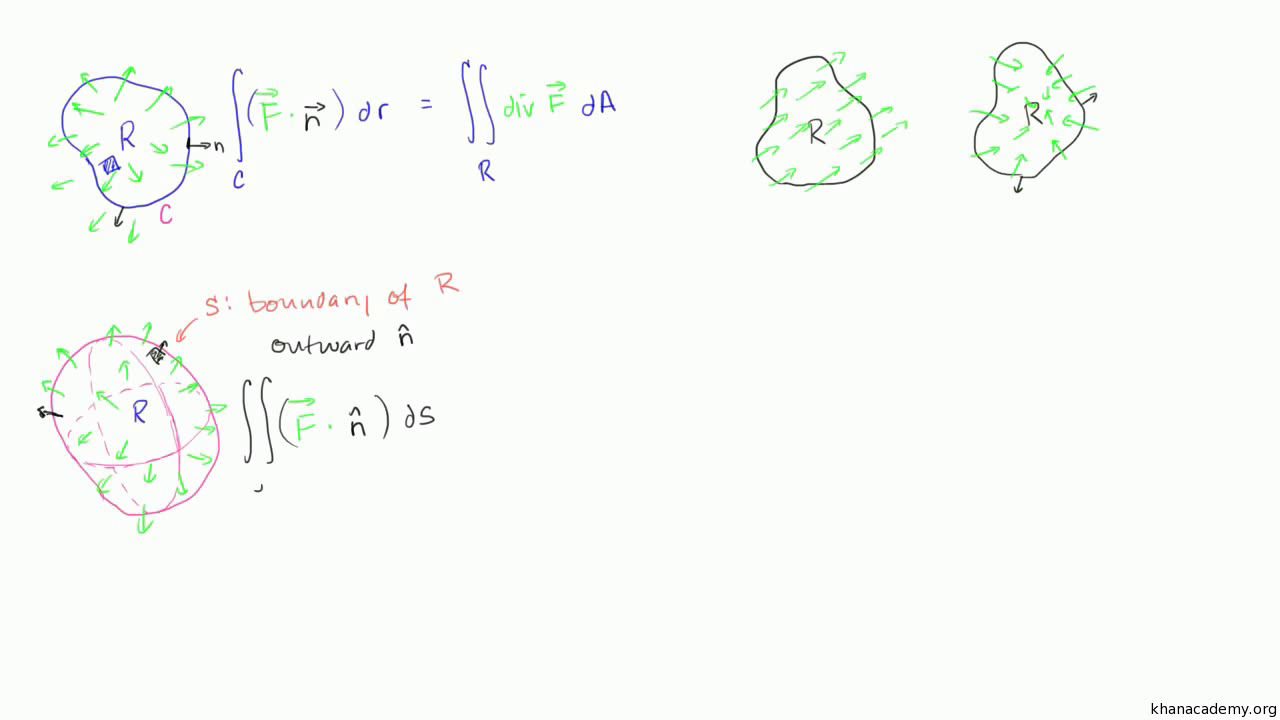 R
n
C
∫ (F⃗ · n⃗) dr = ∬ div F⃗ dA
C
R
R
R
S: boundary of R
outward n̂
R
∬ (F⃗ · n̂) dS
khanacademy.org